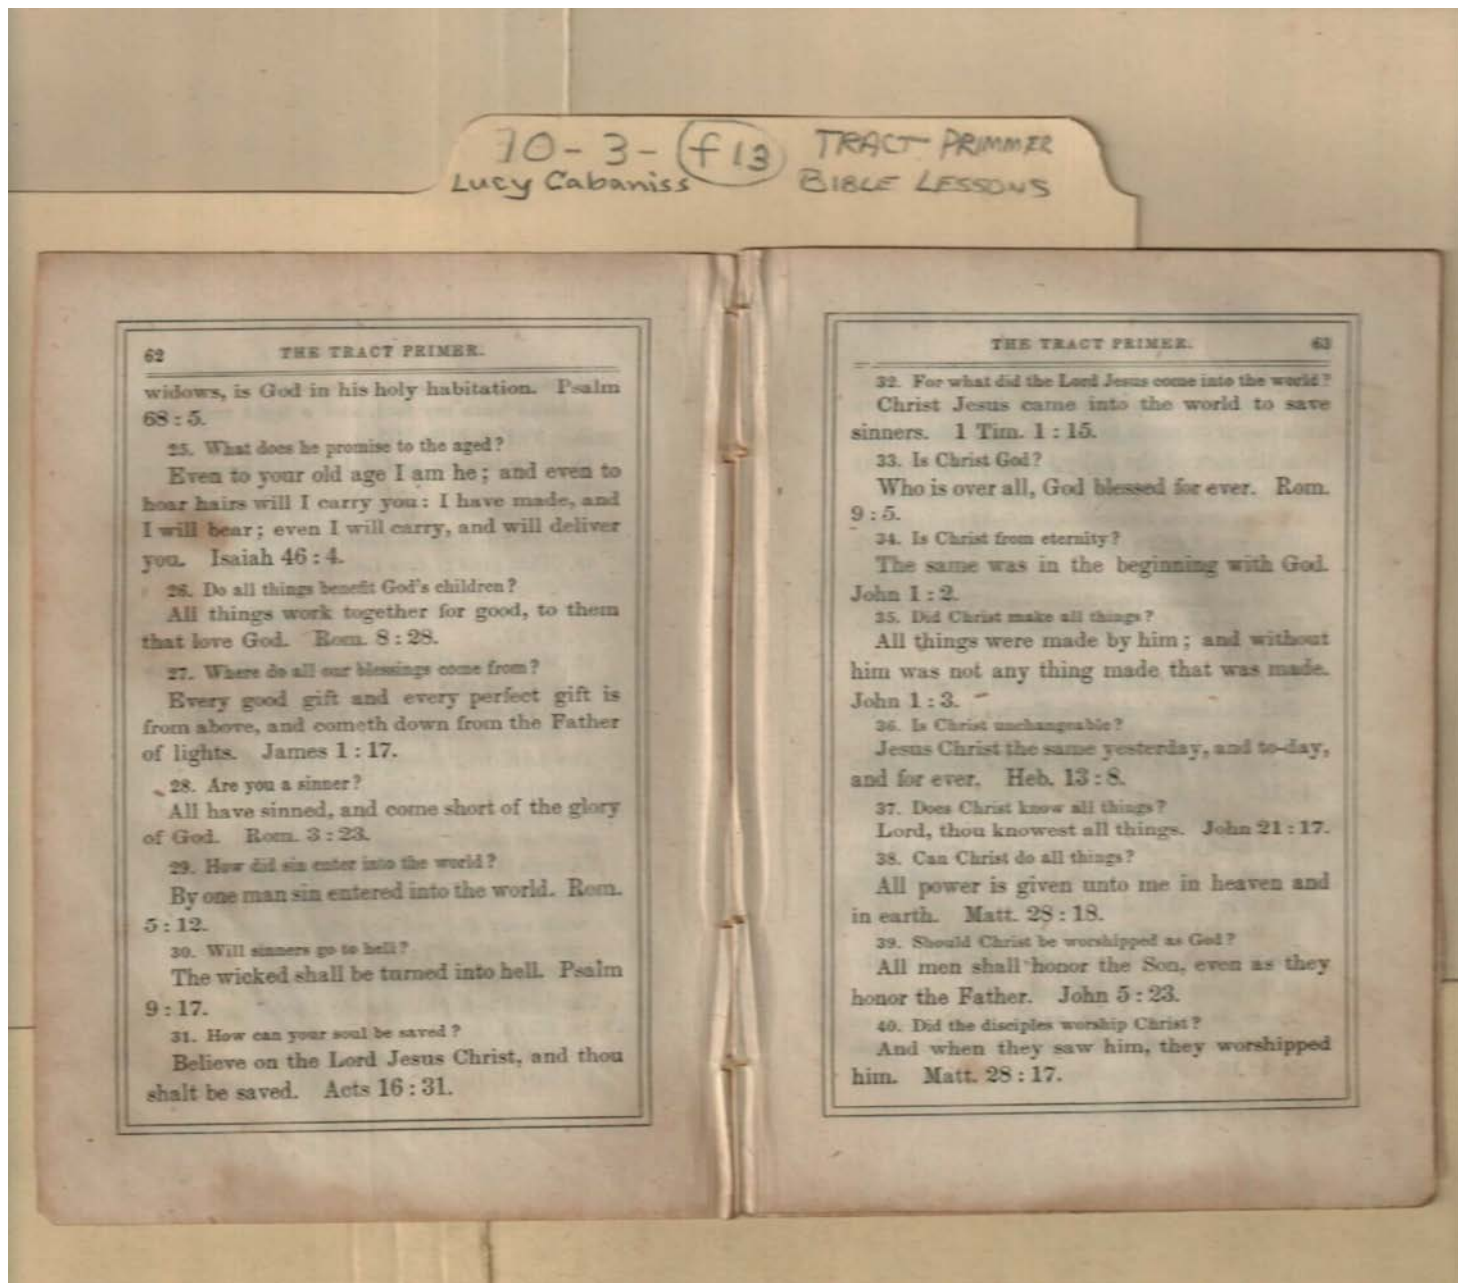 10-3-f13 TRACT PRIMMER
Lucy Cabaniss BIBLE LESSONS
62 THE TRACT PRIMER.
widows, is God in his holy habitation. Psalm
68 : 5.
25. What does he promise to the aged?
Even to your old age I am he; and even to
hoar hairs will I carry you: I have made, and
I will bear; even I will carry, and will deliver
you. Isaiah 46 : 4.
26. Do all things benefit God's children?
All things work together for good, to them
that love God. Rom. 8 : 28.
27. Where do all our blessings come from?
Every good gift and every perfect gift is
from above, and cometh down from the Father
of lights. James 1 : 17.
28. Are you a sinner?
All have sinned, and come short of the glory
of God. Rom. 3 : 23.
29. How did sin enter into the world?
By one man sin entered into the world. Rom.
5 : 12.
30. Will sinners go to hell?
The wicked shall be turned into hell. Psalm
9 : 17.
31. How can your soul be saved?
Believe on the Lord Jesus Christ, and thou
shalt be saved. Acts 16 : 31.
THE TRACT PRIMER. 63
32. For what did the Lord Jesus come into the world?
Christ Jesus came into the world to save
sinners. 1 Tim. 1 : 15.
33. Is Christ God?
Who is over all, God blessed for ever. Rom.
9 : 5.
34. Is Christ from eternity?
The same was in the beginning with God.
John 1 : 2.
35. Did Christ make all things?
All things were made by him; and without
him was not any thing made that was made.
John 1 : 3.
36. Is Christ unchangeable?
Jesus Christ the same yesterday, and to-day,
and for ever. Heb. 13 : 8.
37. Does Christ know all things?
Lord, thou knowest all things. John 21 : 17.
38. Can Christ do all things?
All power is given unto me in heaven and
in earth. Matt. 28 : 18.
39. Should Christ be worshipped as God?
All men shall honor the Son, even as they
honor the Father. John 5 : 23.
40. Did the disciples worship Christ?
And when they saw him, they worshipped
him. Matt. 28 : 17.